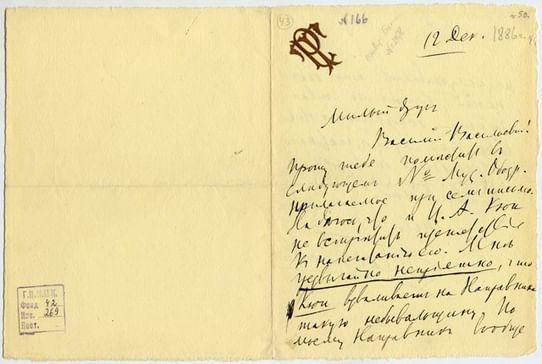 43
№ 166
№ 50.
12 Дек.
1886 г.
Милый друг
Василий Васильевич!
Прошу тебя поместить в
следующем № Муз. Обозр.
прилагаемое при сем письмо.
Надеюсь, что и Ц. А. Кюи
не встретит препятствия
к напечатанию. Мне
чрезвычайно неприятно, что
Кюи взваливает на Направника
такую небывальщину. По
моему Направник вообще
Фонд 42
269